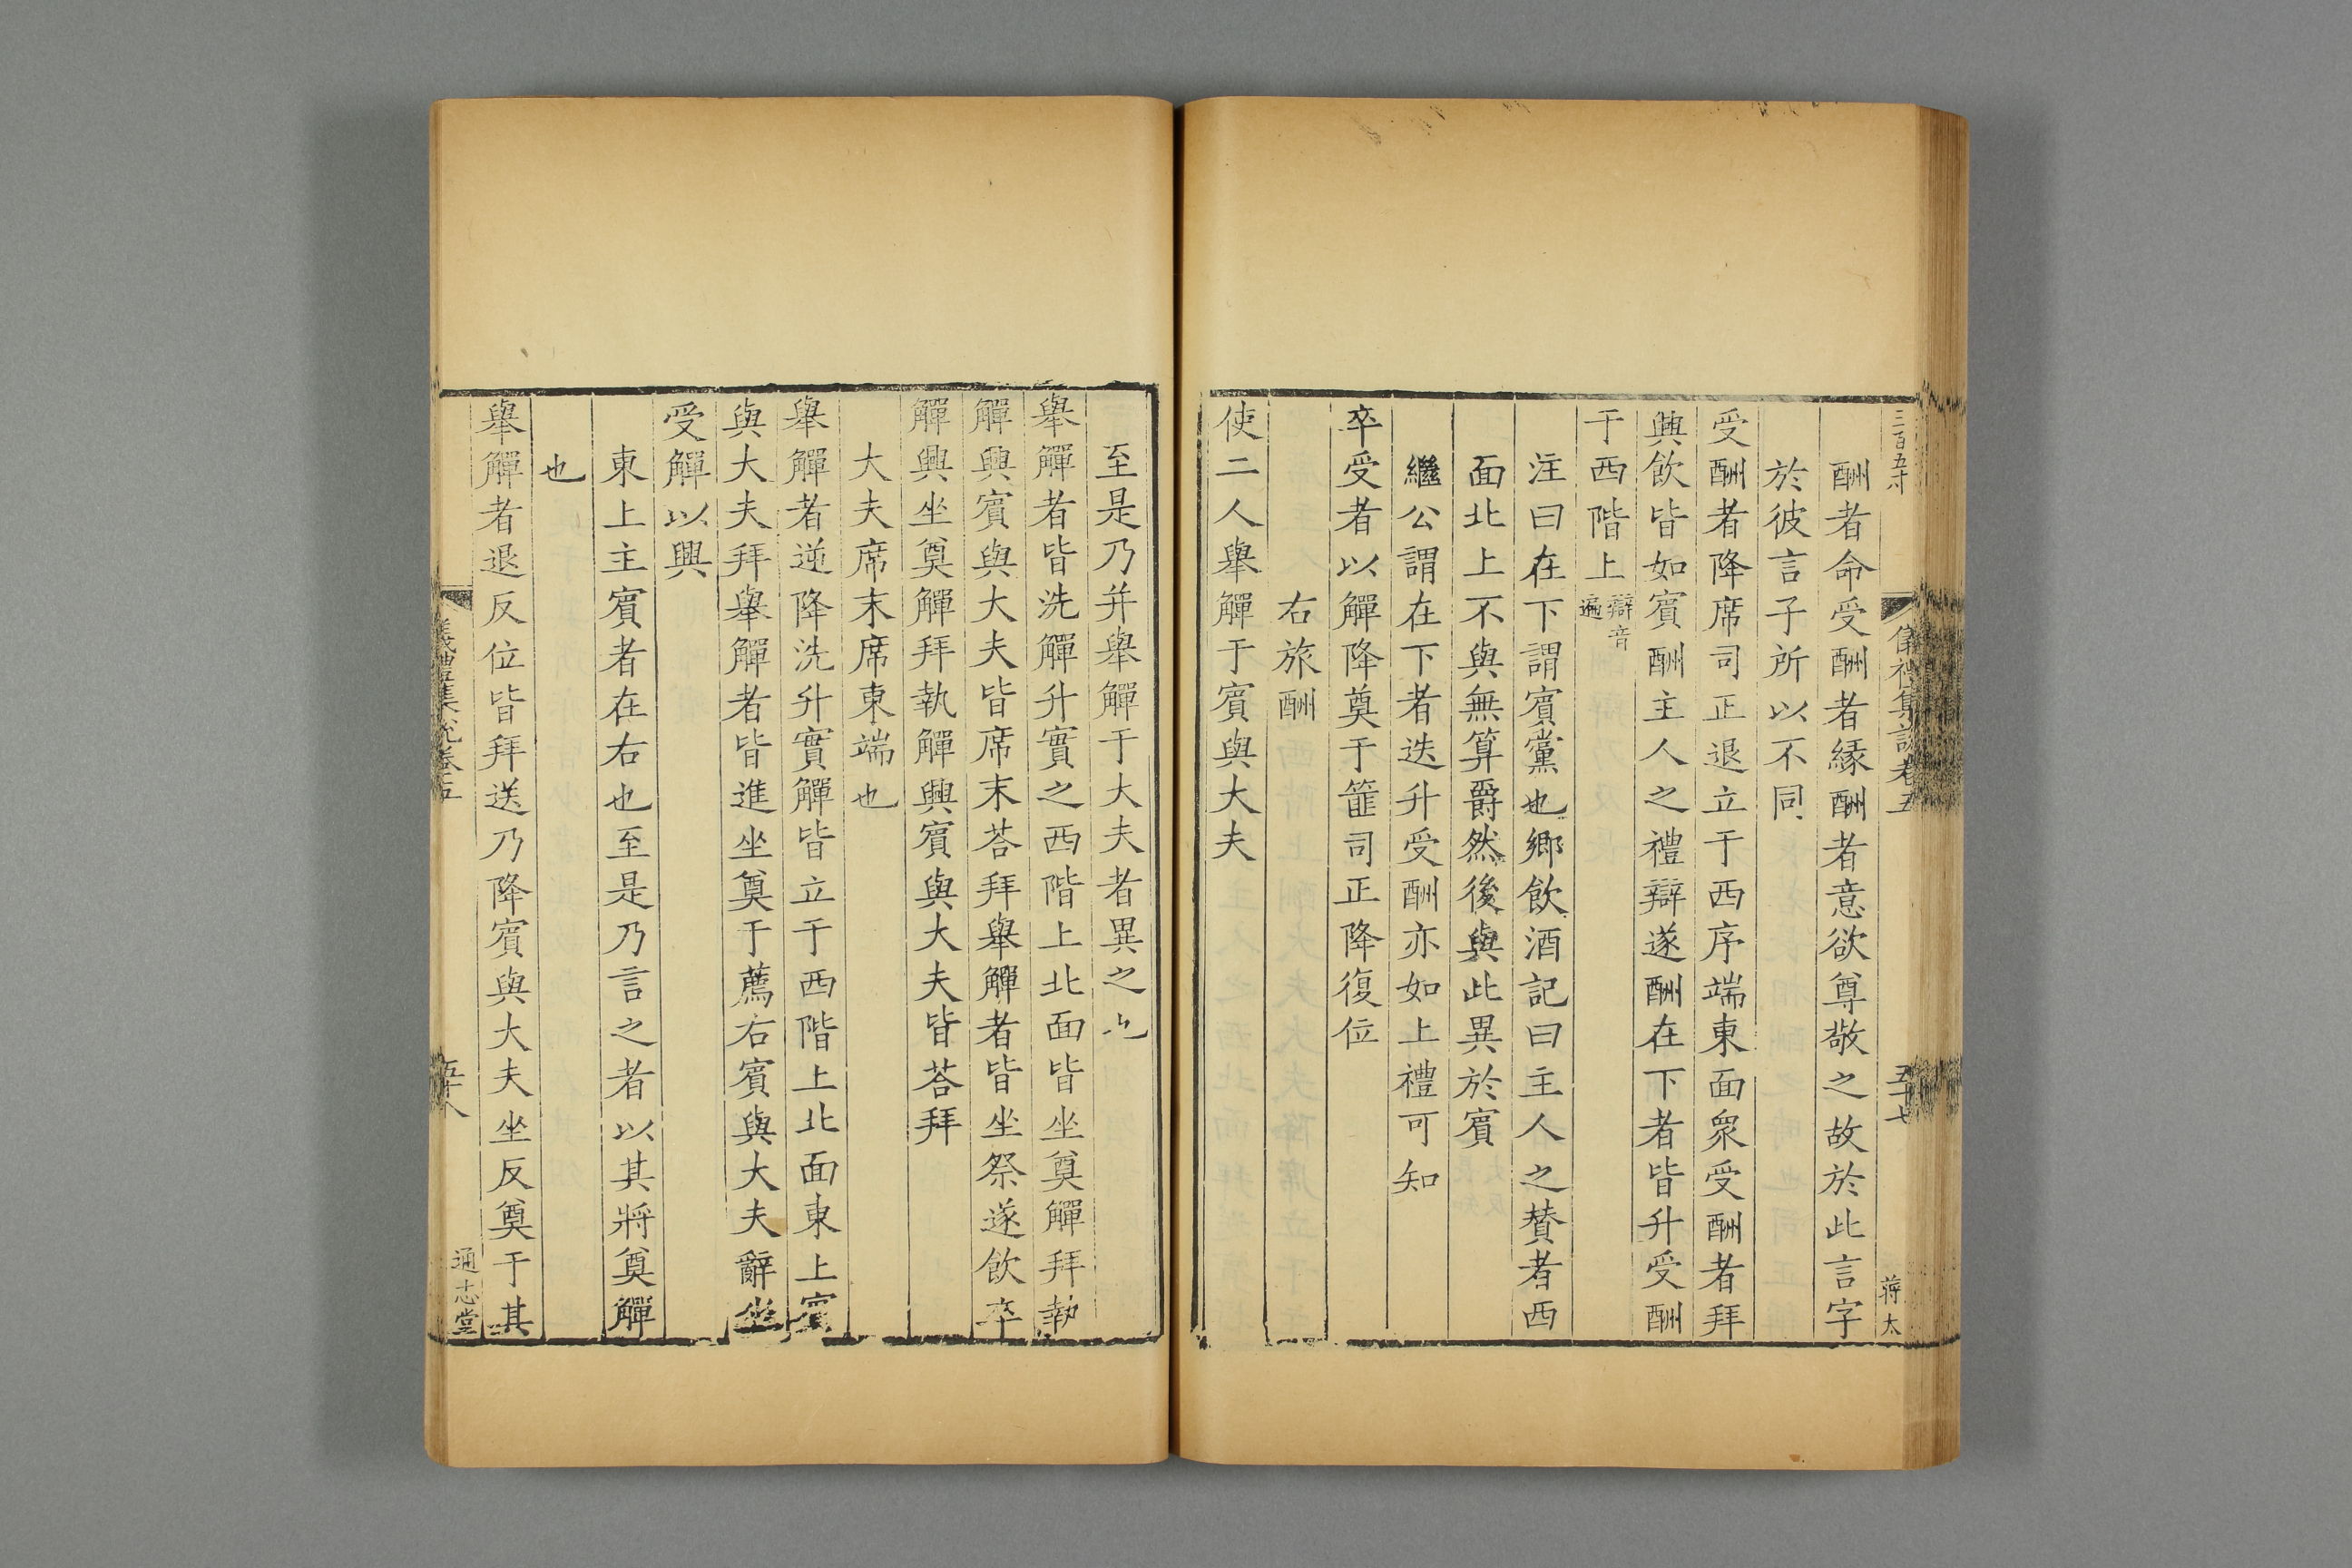 三百五十
儀禮集說卷五
五十七
蔣太
酬者命受酬者緣酬者意欲尊敬之故於此言字
於彼言子所以不同
受酬者降席司正退立于西序端東面衆受酬者拜
興飲皆如賓酬主人之禮辯遂酬在下者皆升受酬
于西階上辯音遍
注曰在下謂賓黨也鄉飲酒記曰主人之賛者西
面北上不與無算爵然後與此異於賓
繼公謂在下者迭升受酬亦如上禮可知
卒受者以觶降奠于篚司正降復位
右旅酬
使二人舉觶于賓與大夫
至是乃并舉觶于大夫者異之也
舉觶者皆洗觶升實之西階上北面皆坐奠觶拜執
觶興賓與大夫皆席末荅拜舉觶者皆坐祭遂飲卒
觶興坐奠觶拜執觶興賓與大夫皆荅拜
大夫席末席東端也
舉觶者逆降洗升實觶皆立于西階上北面東上賓
與大夫拜舉觶者皆進坐奠于薦右賓與大夫辭坐
受觶以興
東上主賓者在右也至是乃言之者以其將奠觶
也
舉觶者退反位皆拜送乃降賓與大夫坐反奠于其
儀禮集說卷五
五十八
通志堂